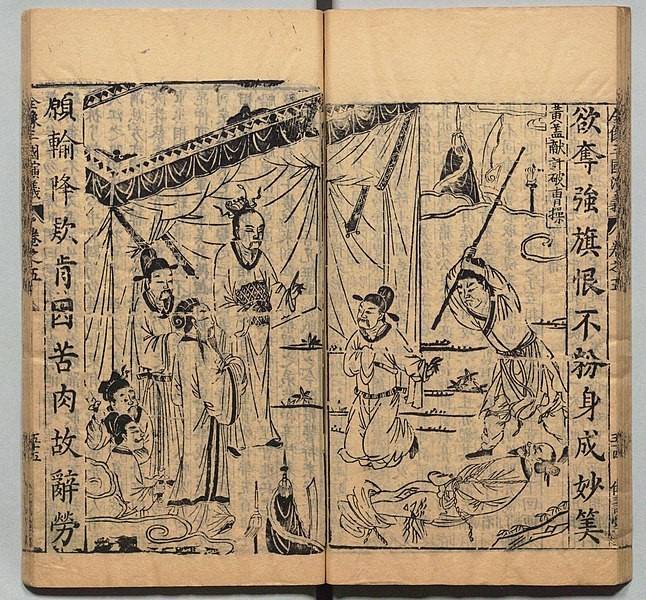 欲奪強旗恨不粉身成妙筭
黃盖献計破曹操
全像三國演義
卷之五
願輸降欵肯因苦肉故辭勞
全像三國演義
卷之五